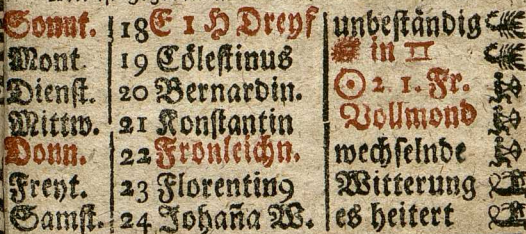 Sonnt. 18 E 1 H Dreyf unbeständig
Mont. 19 Cölestinus in ♊
Dienst. 20 Bernardin. ☉ 2. 1. Fr.
Mittw. 21 Konstantin Vollmond
Donn. 22 Fronleichn. wechselnde
Freyt. 23 Florentin9 Witterung
Samst. 24 Johaña W. es heitert